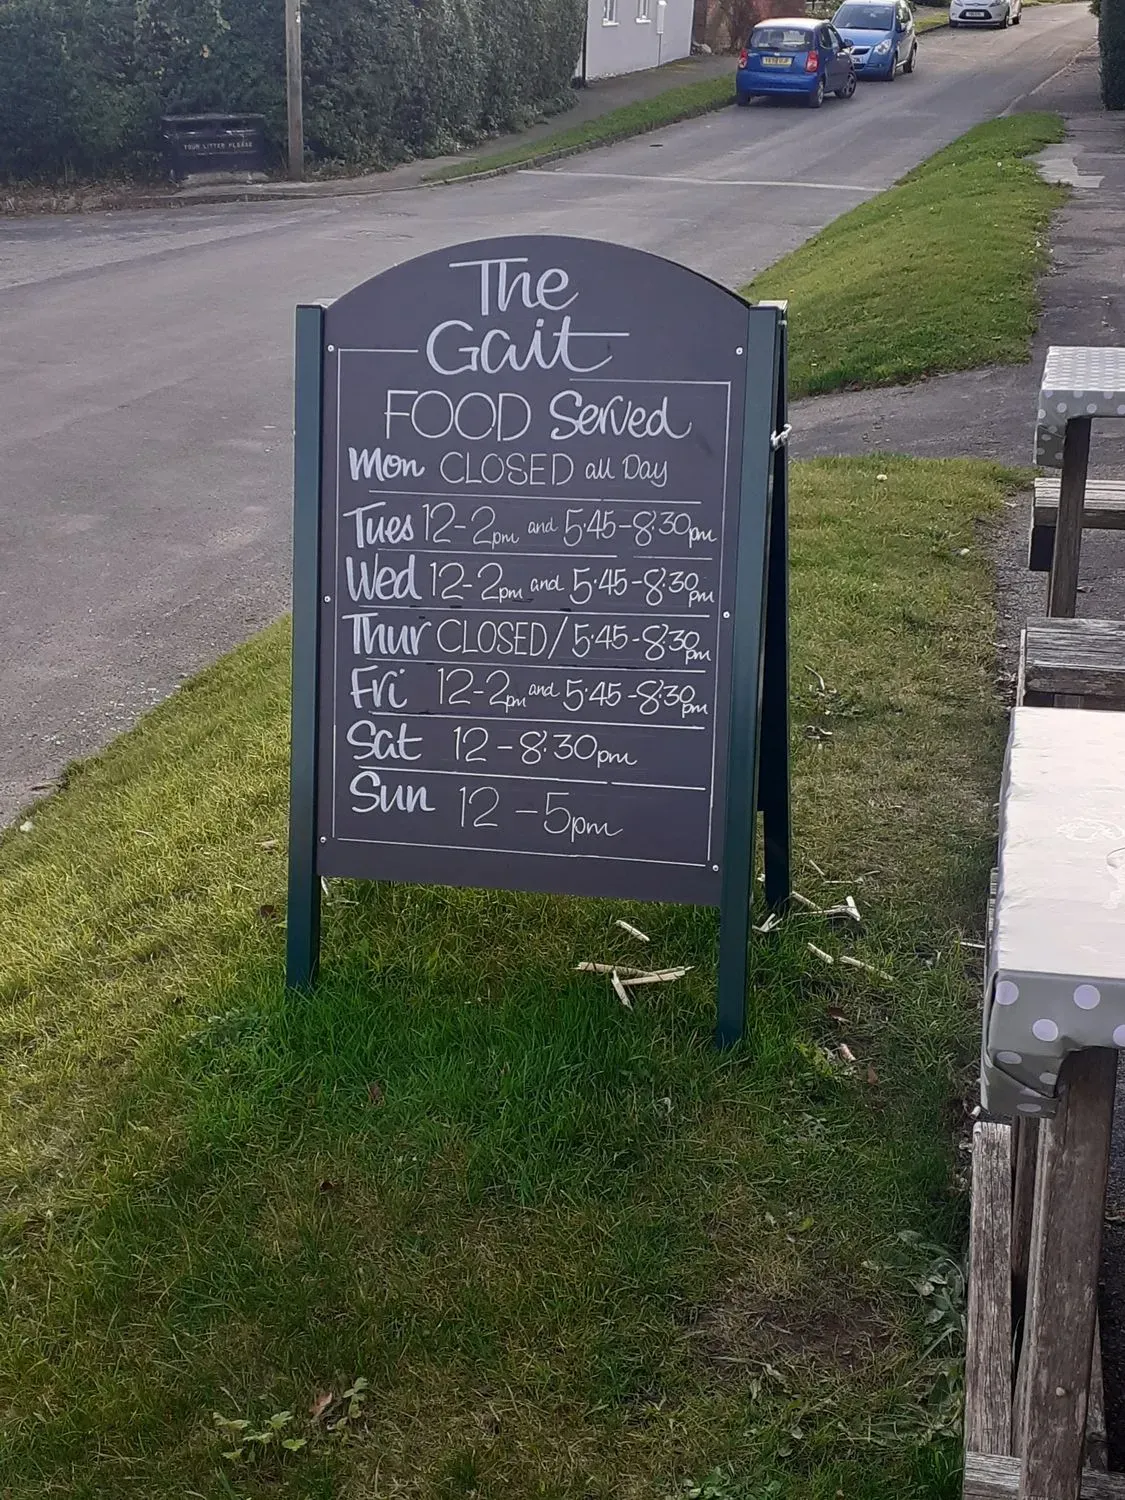 YOUR LITTER PLEASE
The
Gait
FOOD Served
Mon CLOSED all Day
Tues 12-2pm and 5.45-8.30pm
Wed 12-2pm and 5.45-8.30pm
Thur CLOSED/5.45-8.30pm
Fri 12-2pm and 5.45-8.30pm
Sat 12-8.30pm
Sun 12-5pm